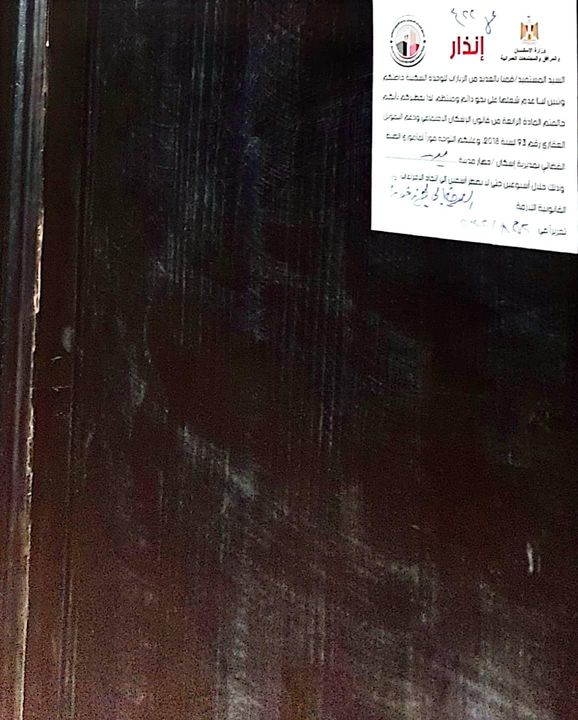 وزارة الإسكان
والمرافق والمجتمعات العمرانية
إنذار
السيد المستفيد / قمنا بالعديد من الزيارات للوحدة السكنية خاصتكم
وتبين لنا عدم شغلها على نحو دائم ومنتظم، لذا نخطركم بأنكم
خالفتم المادة الرابعة من قانون الإسكان الاجتماعي ودعم التمويل
العقاري رقم 93 لسنة 2018، وعليكم التوجه فوراً لمأموري الضبط
القضائي بمديرية إسكان / جهاز مدينة
وذلك خلال أسبوعين حتى لا نضطر آسفين إلى إتخاذ الإجراءات
القانونية اللازمة
تحريراً في